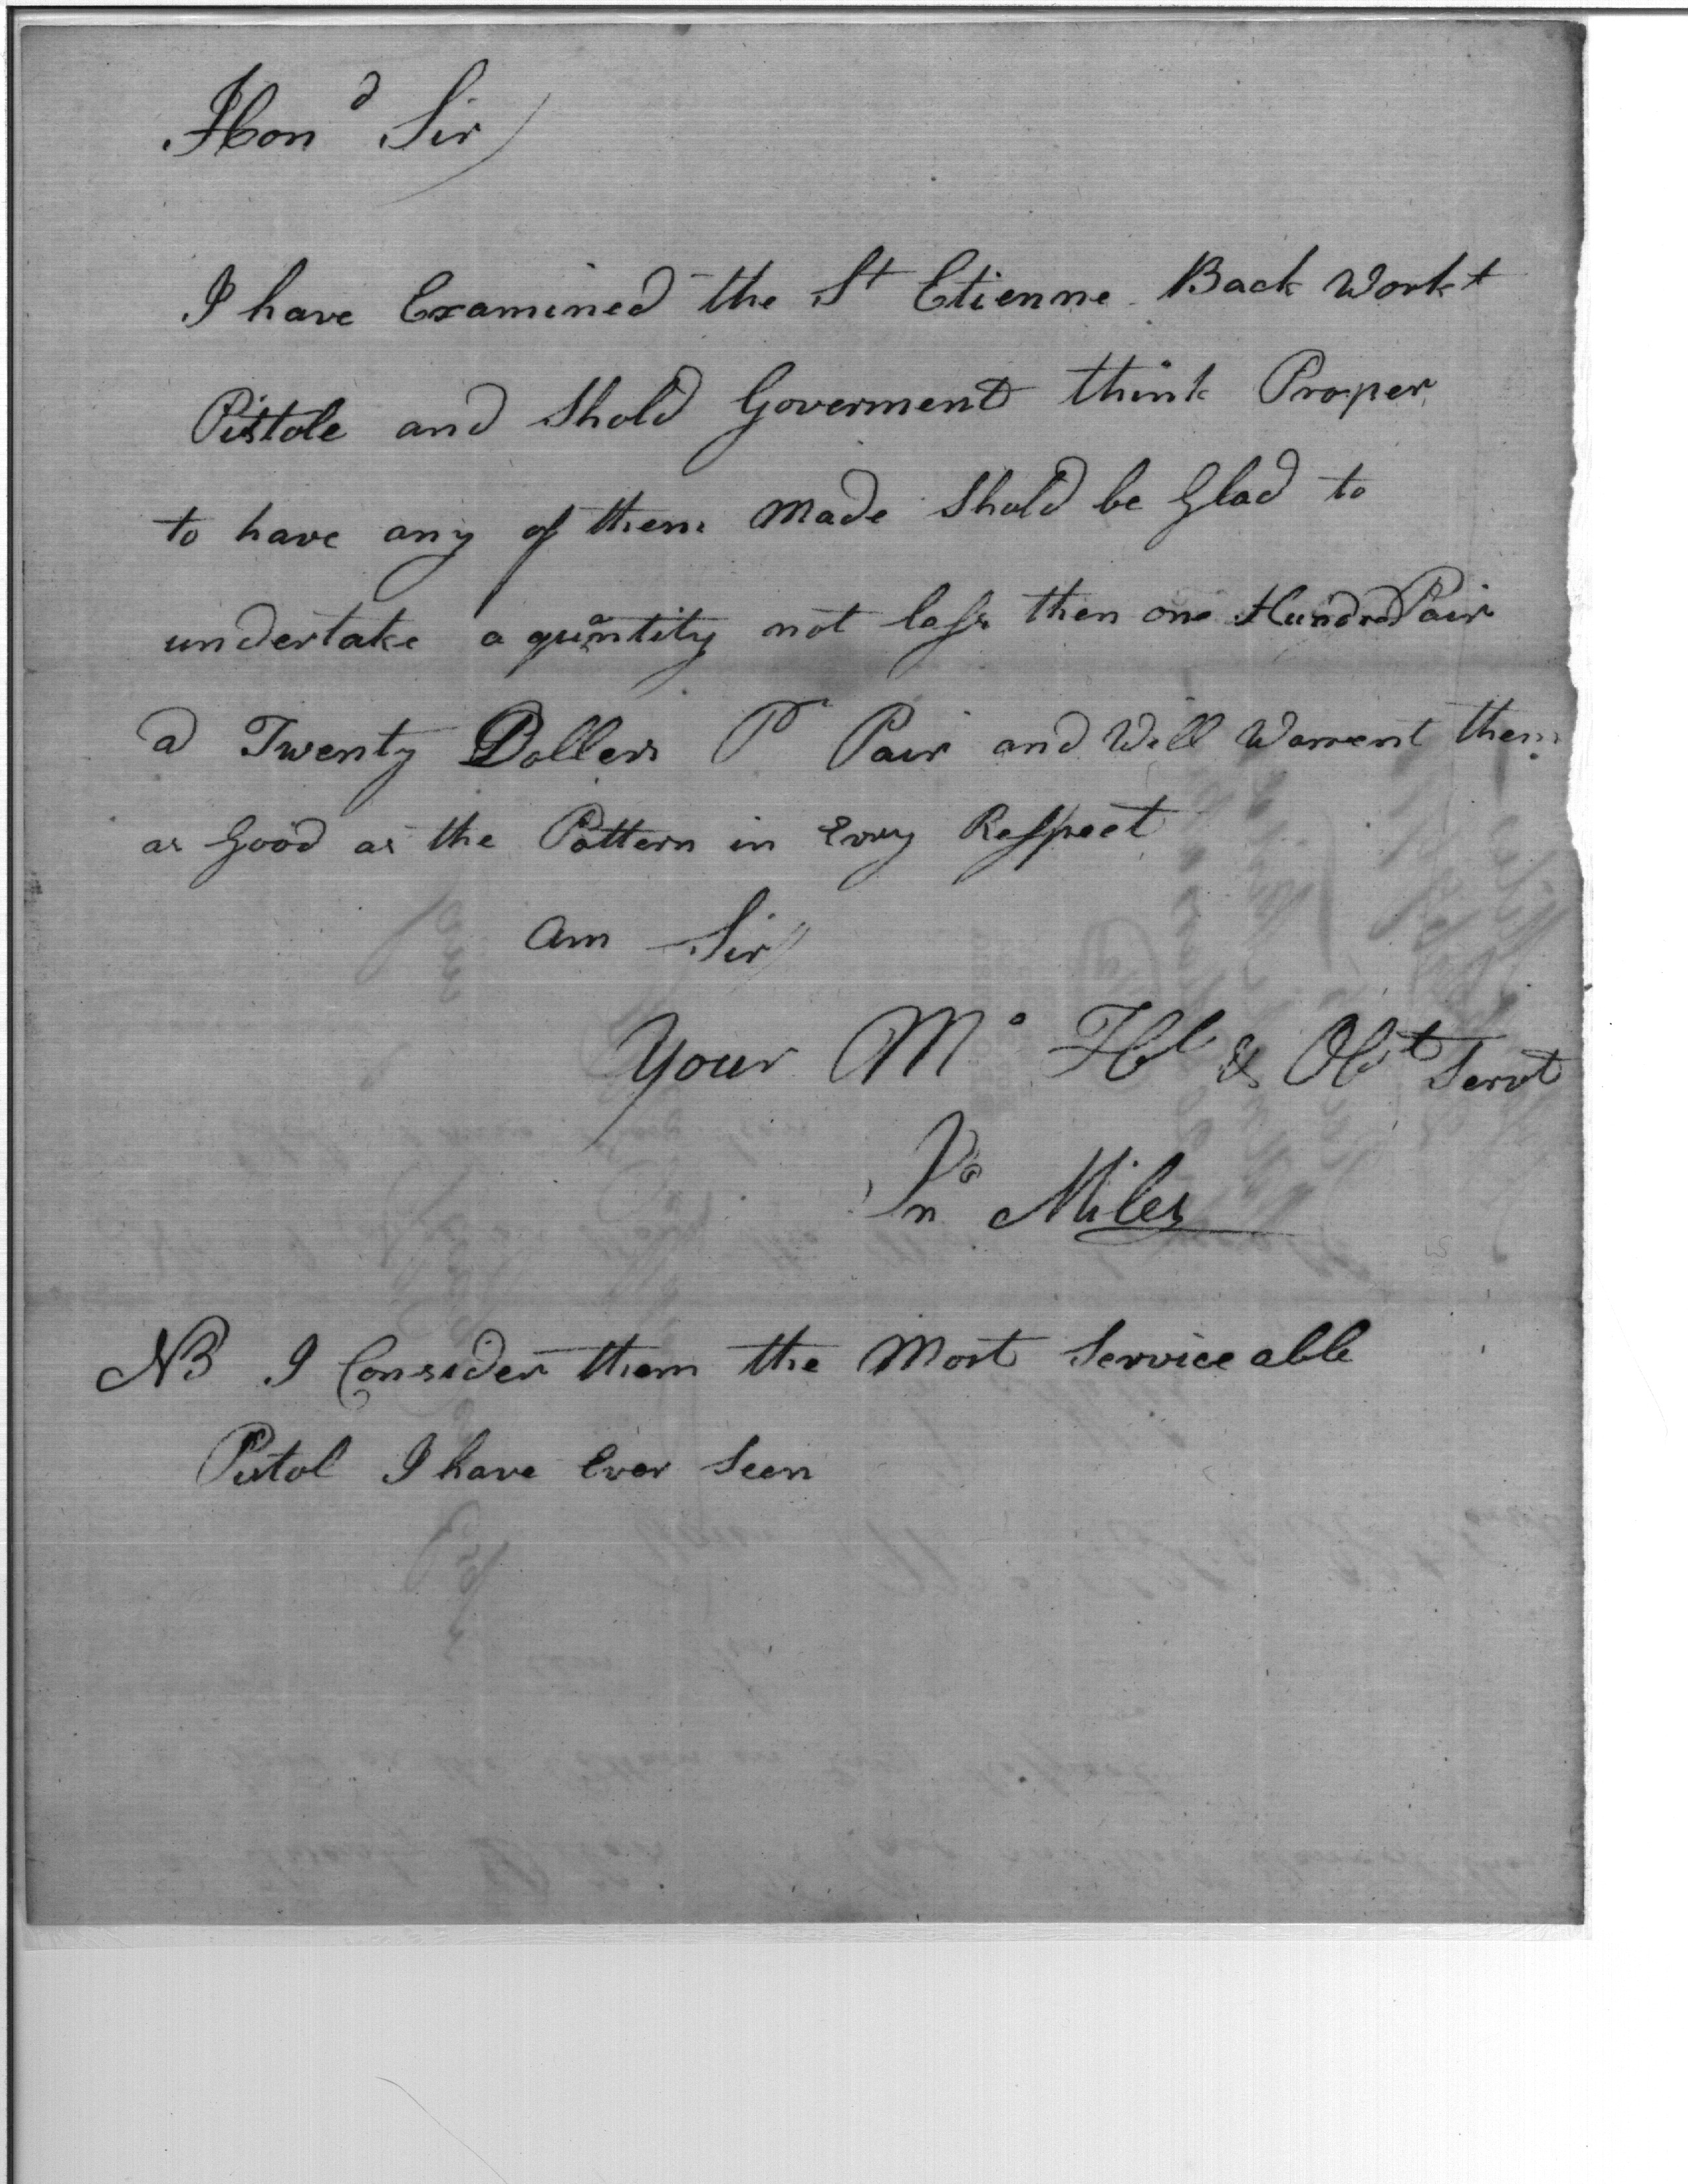 Hon^d Sir
I have Examined the S^t Etienne Back Work^t
Pistole and Shold Goverment think Proper
to have any of them Made Shold be Glad to
undertake a quantity not less then one Hundred Pair
a Twenty Dollers P^r Pair and Will Warrent them
as Good as the Pattern in Evry Respect
am Sir
Your M^o H^bl & Ob^t Servt
Jn^o Miles
NB I Consider them the Most Serviceable
Pistol I have Ever Seen